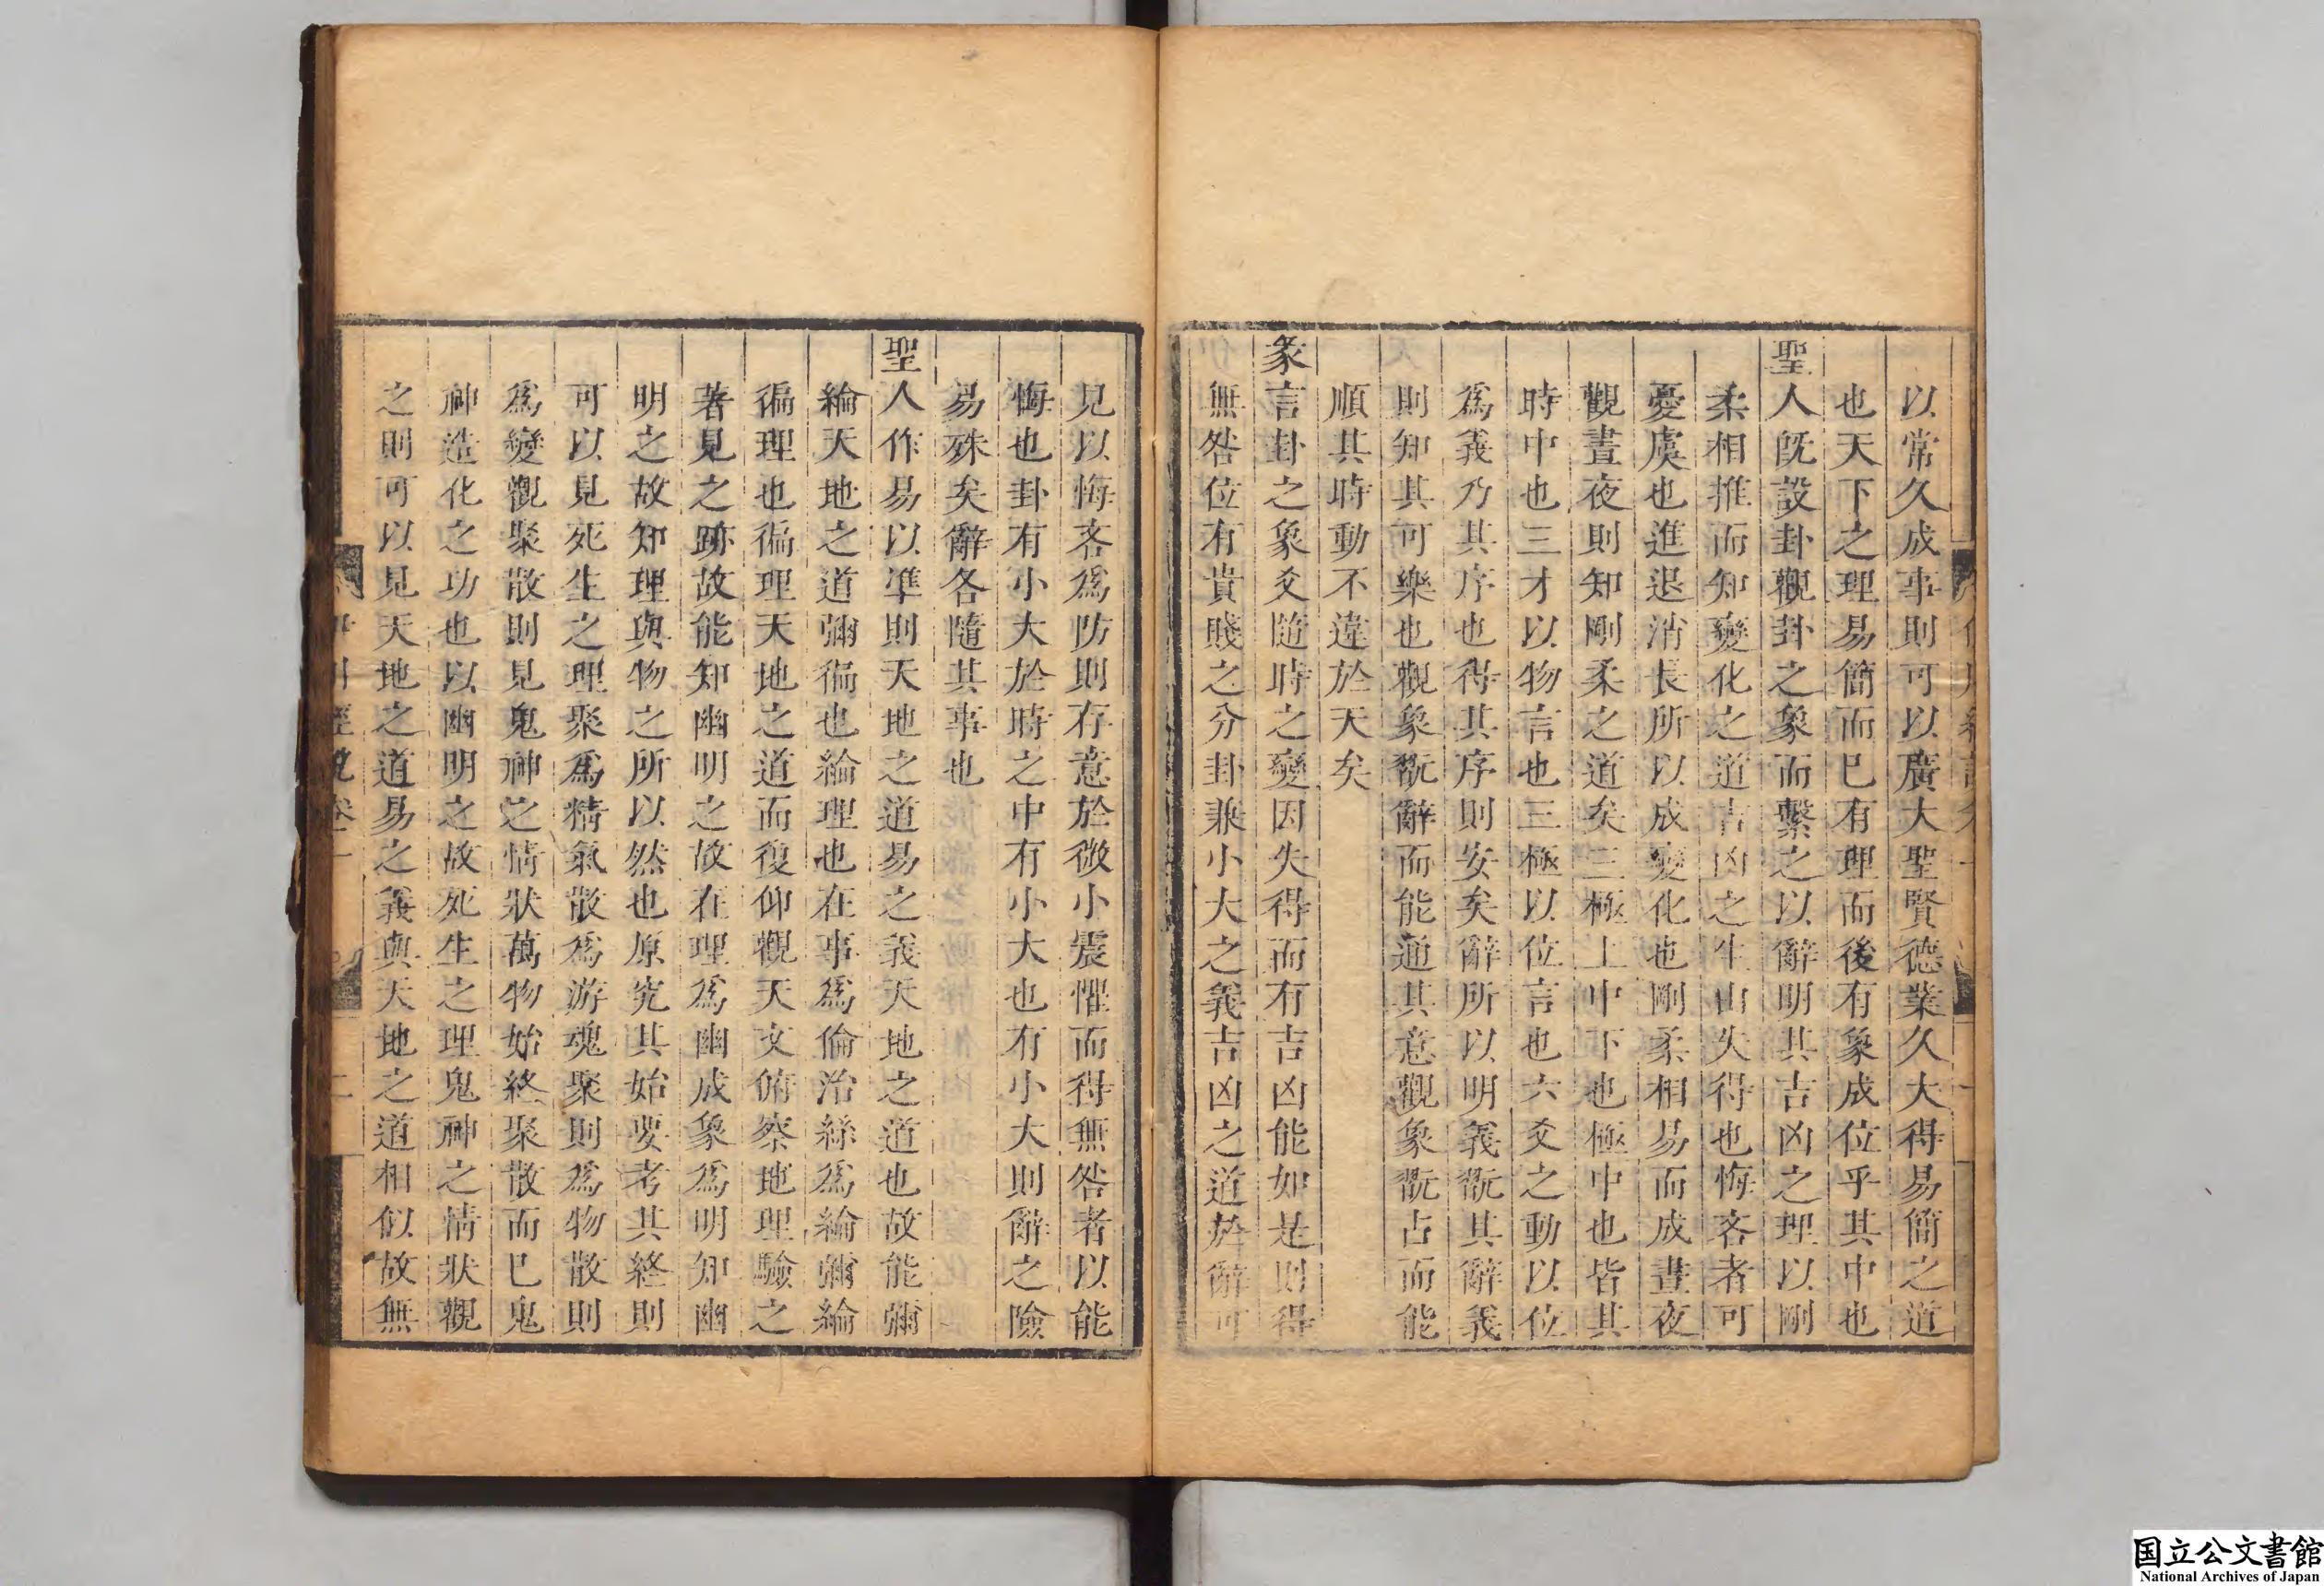 以常久成事則可以廣大聖賢德業久大得易簡之道
也天下之理易簡而已有理而後有象成位乎其中也
聖人既設卦觀卦之象而繫之以辭明其吉凶之理以剛
柔相推而知變化之道吉凶之生由失得也悔吝者可
憂虞也進退消長所以成變化也剛柔相易而成晝夜
觀晝夜則知剛柔之道矣三極上中下也極中也皆其
時中也三才以物言也三極以位言也六爻之動以位
爲義乃其序也得其序則安矣辭所以明義翫其辭義
則知其可樂也觀象翫辭而能通其意觀象翫占而能
順其時動不違於天矣
彖言卦之象爻隨時之變因失得而有吉凶能如是則得
無咎位有貴賤之分卦兼小大之義吉凶之道於辭可
見以悔吝爲防則存意於微小震懼而得無咎者以能
悔也卦有小大於時之中有小大也有小大則辭之險
易殊矣辭各隨其事也
聖人作易以準則天地之道易之義天地之道也故能彌
綸天地之道彌徧也綸理也在事爲倫治絲爲綸彌綸
徧理也徧理天地之道而復仰觀天文俯察地理驗之
著見之跡故能知幽明之故在理爲幽成象爲明知幽
明之故知理與物之所以然也原究其始要考其終則
可以見死生之理聚爲精氣散爲游魂聚則爲物散則
爲變觀聚散則見鬼神之情狀萬物始終聚散而已鬼
神造化之功也以幽明之故死生之理鬼神之情狀觀
之則可以見天地之道易之義與天地之道相似故無
国立公文書館
National Archives of Japan